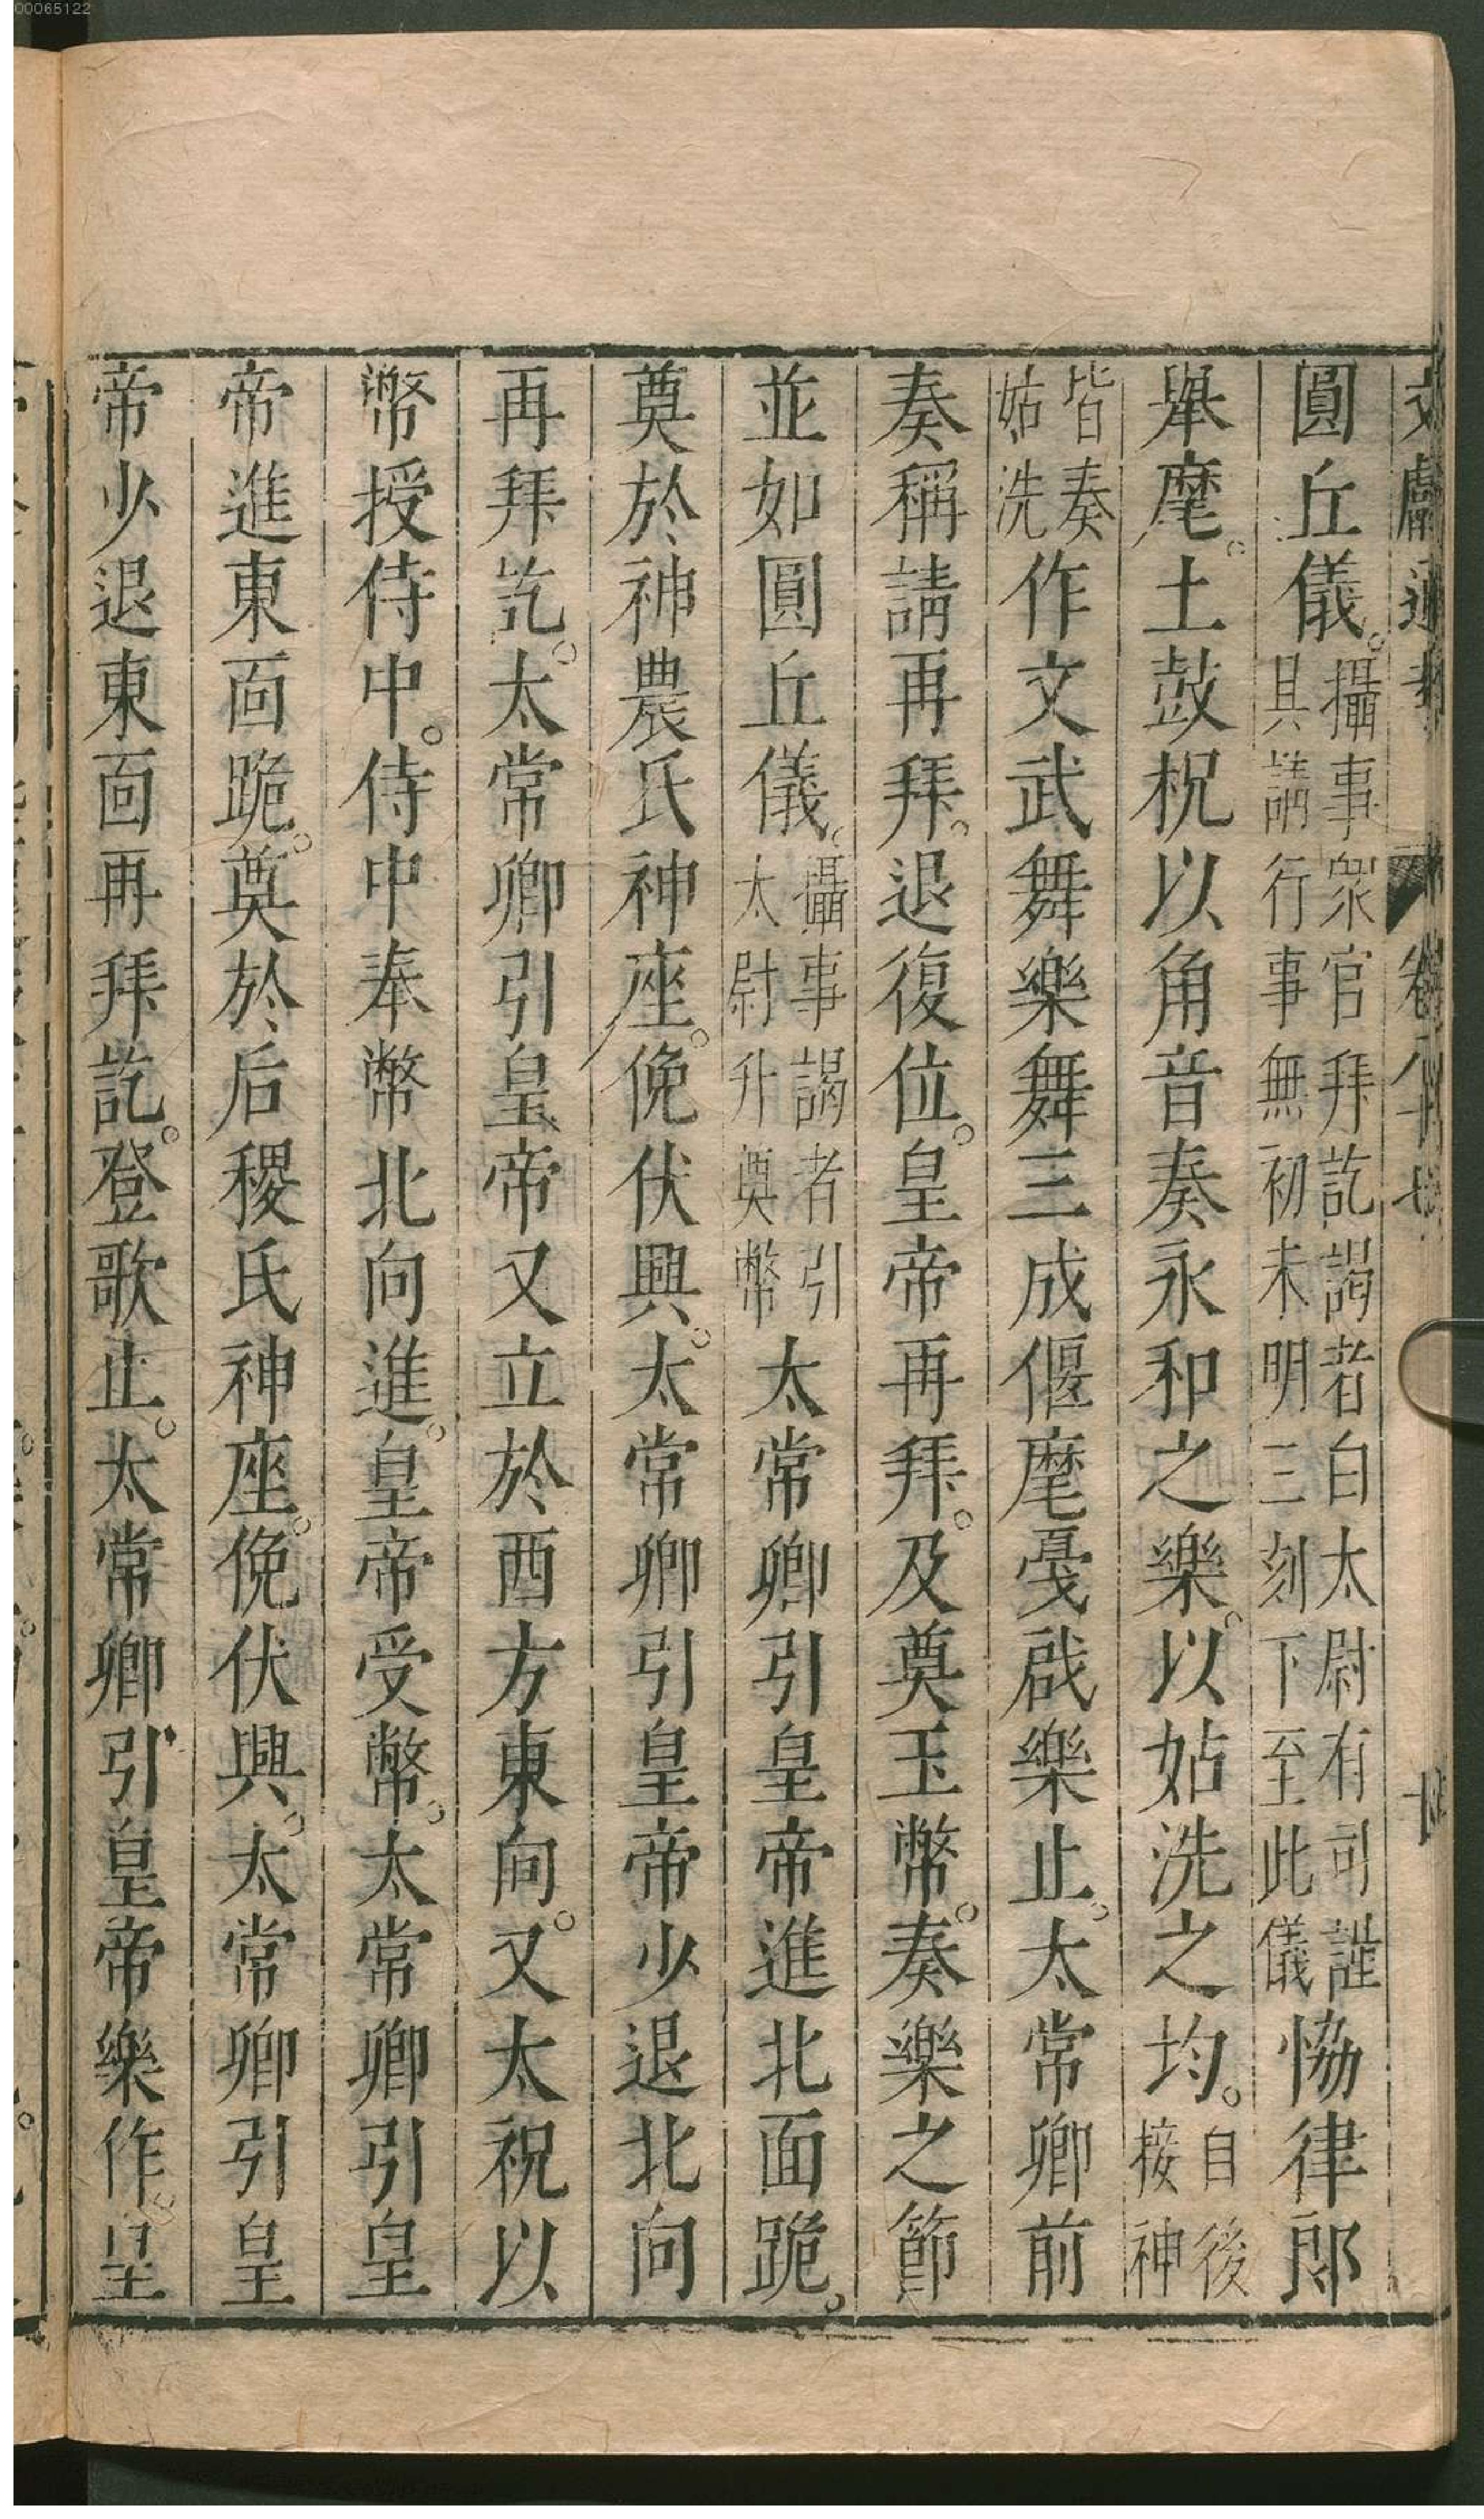 00065122
圓丘儀。攝事衆官拜訖謁者白太尉有司謹具請行事無初未明三刻下至此儀協律郎
舉麾。土鼓柷以角音奏永和之樂。以姑洗之均。自後接神
皆奏姑洗作文武舞樂舞三成偃麾戞敔樂止。太常卿前
奏稱請再拜。退復位。皇帝再拜。及奠玉幣。奏樂之節
並如圓丘儀。攝事謁者引太尉升奠幣太常卿引皇帝進北面跪。
奠於神農氏神座。俛伏興。太常卿引皇帝少退北向
再拜訖。太常卿引皇帝又立於西方東向。又太祝以
幣授侍中。侍中奉幣北向進。皇帝受幣。太常卿引皇
帝進東面跪。奠於后稷氏神座。俛伏興。太常卿引皇
帝少退東面再拜訖。登歌止。太常卿引皇帝樂作。皇